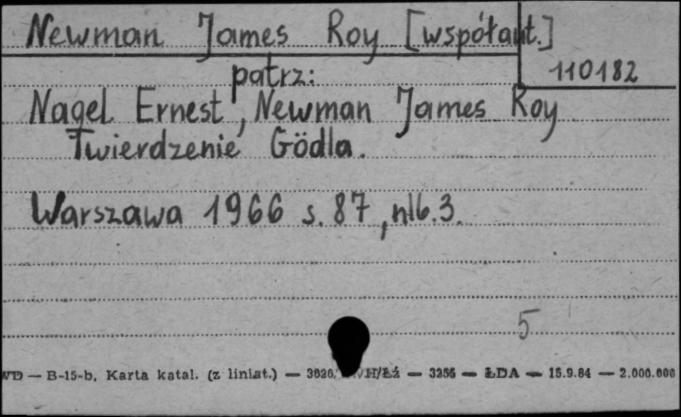 Newman James Roy [współaut.]
110182
patrz:
Nagel Ernest, Newman James Roy
Twierdzenie Gödla.
Warszawa 1966 s. 87, nlb. 3.
5
WD — B-15-b, Karta katal. (z liniat.) — H/Łź — 3256 — ŁDA — 15.9.84 — 2.000.000